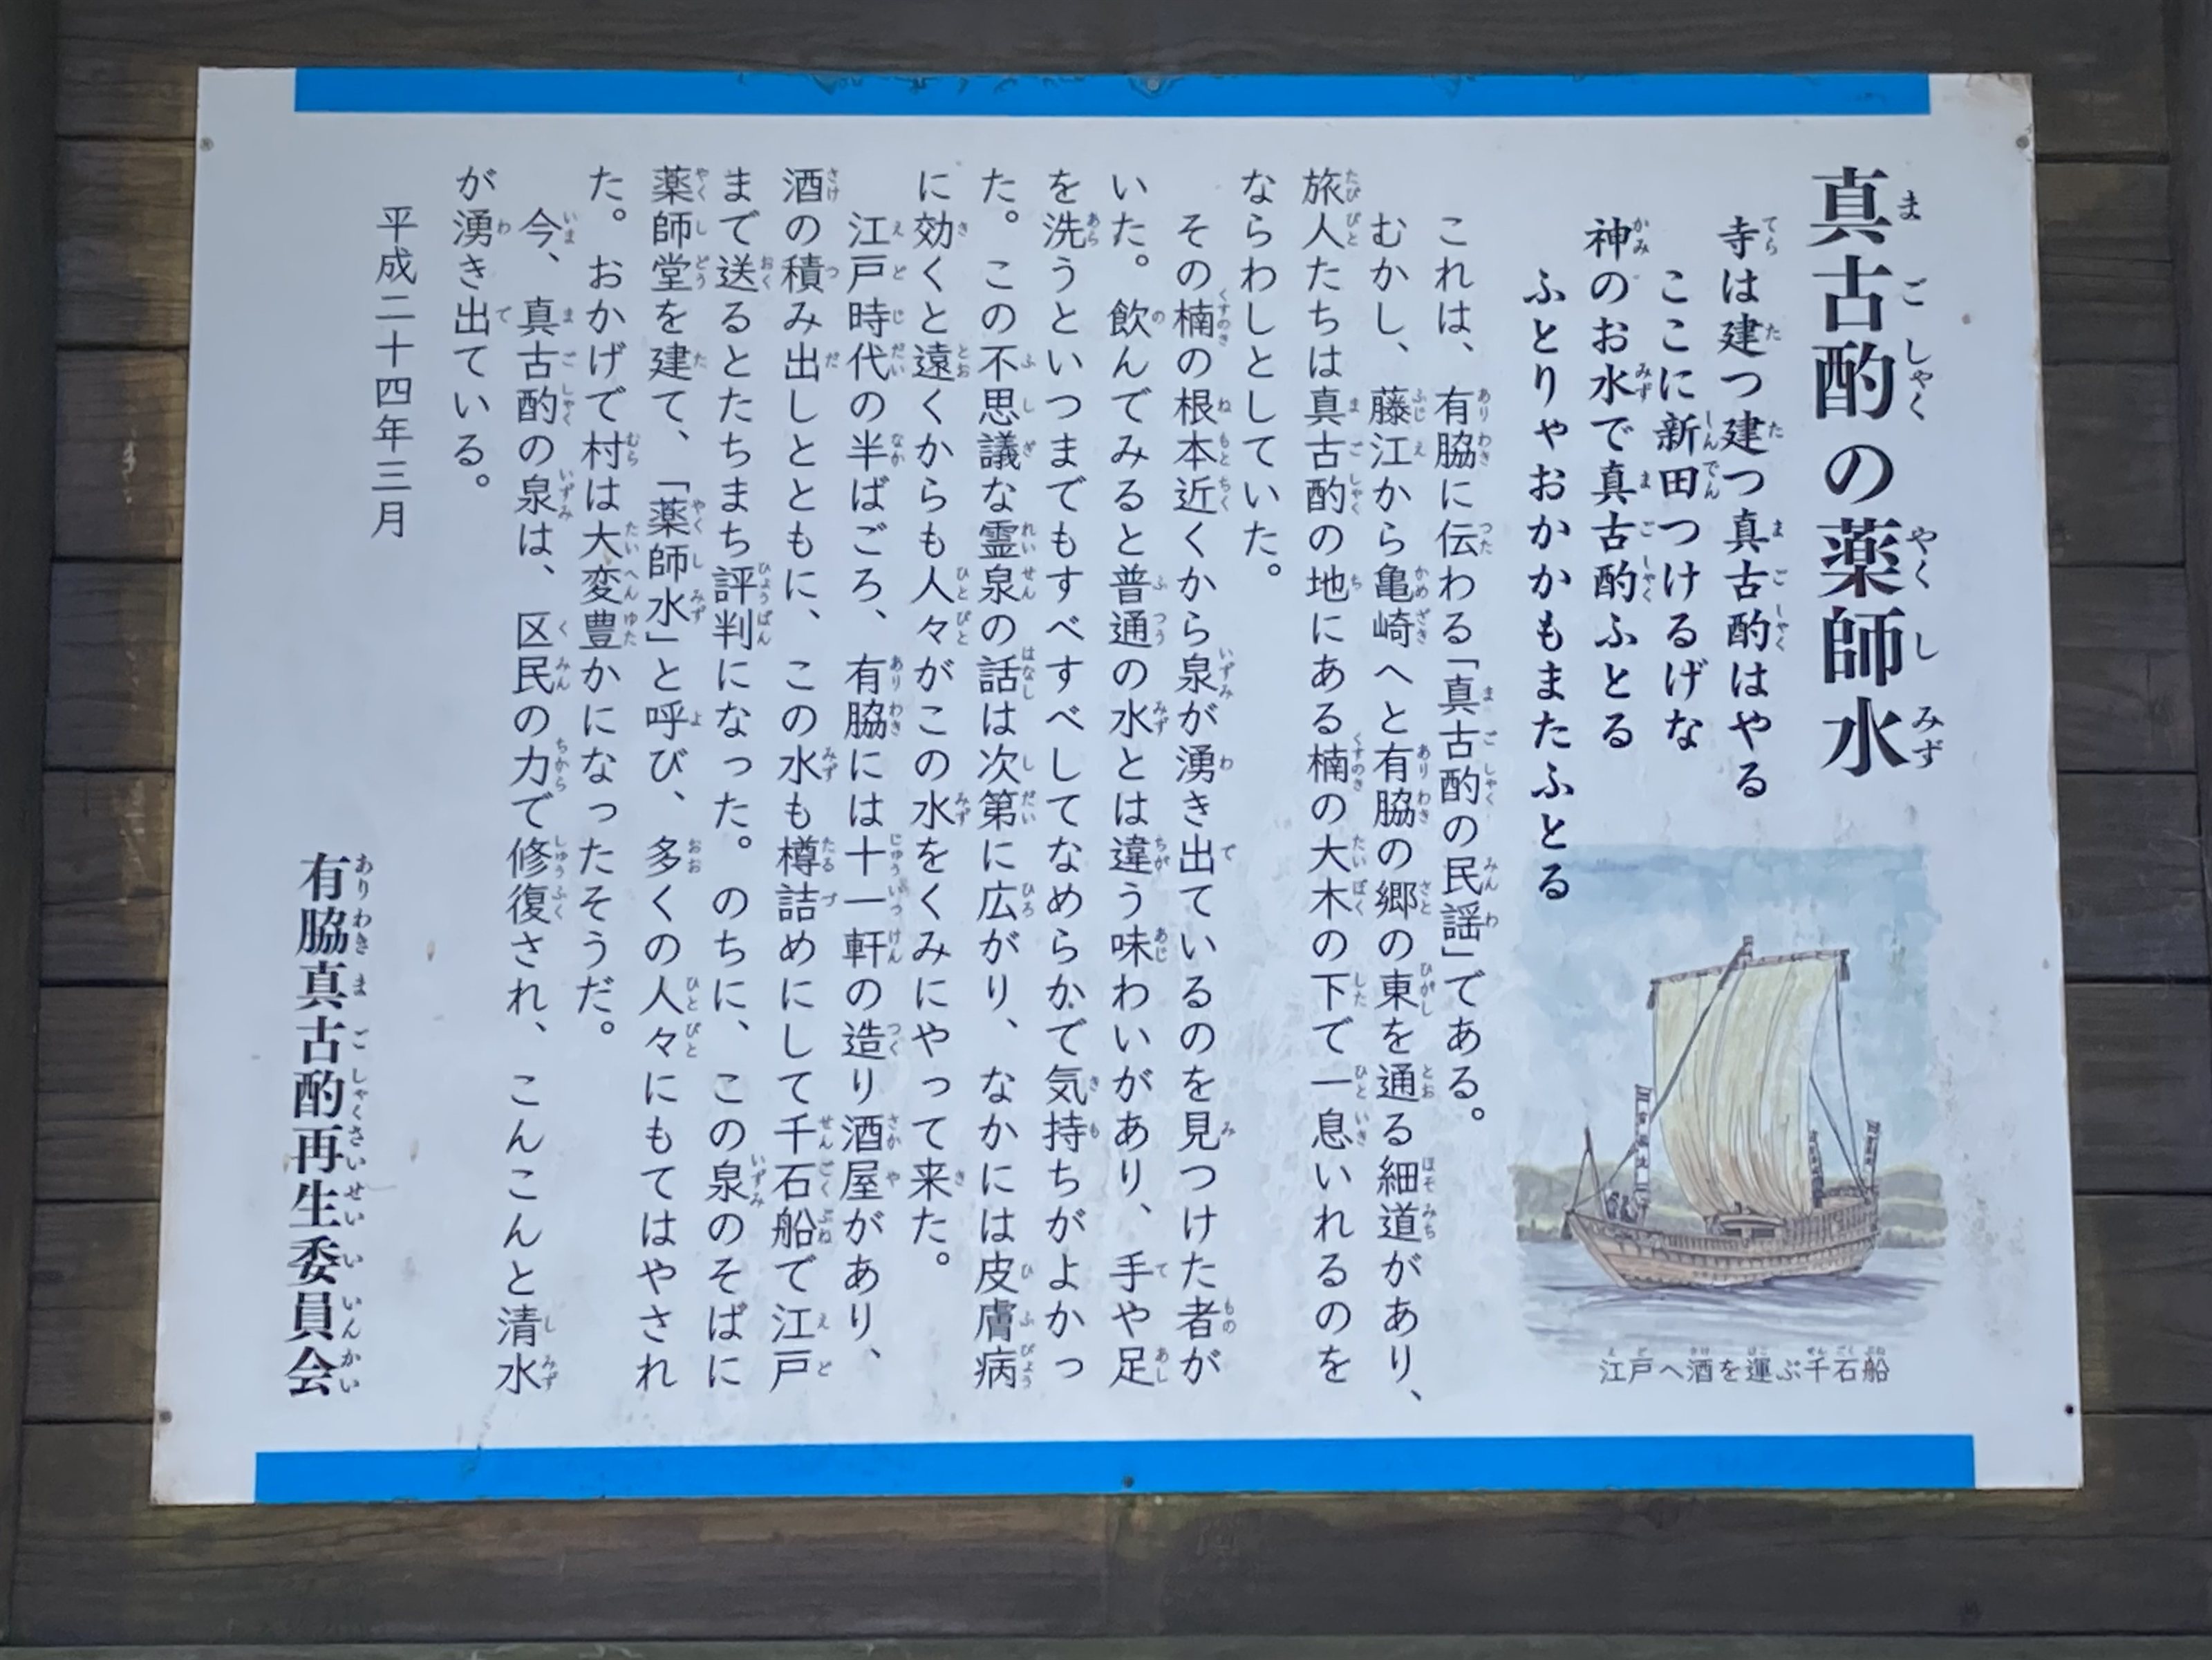 真古酌の薬師水
寺は建つ建つ真古酌はやる
ここに新田つけるげな
神のお水で真古酌ふとる
ふとりゃおかかもまたふとる
これは、有脇に伝わる「真古酌の民謡」である。
むかし、藤江から亀崎へと有脇の郷の東を通る細道があり、
旅人たちは真古酌の地にある楠の大木の下で一息いれるのを
ならわしとしていた。
その楠の根本近くから泉が湧き出ているのを見つけた者が
いた。飲んでみると普通の水とは違う味わいがあり、手や足
を洗うといつまでもすべすべしてなめらかで気持ちがよかっ
た。この不思議な霊泉の話は次第に広がり、なかには皮膚病
に効くと遠くからも人々がこの水をくみにやって来た。
江戸時代の半ばごろ、有脇には十一軒の造り酒屋があり、
酒の積み出しとともに、この水も樽詰めにして千石船で江戸
まで送るとたちまち評判になった。のちに、この泉のそばに
薬師堂を建て、「薬師水」と呼び、多くの人々にもてはやされ
た。おかげで村は大変豊かになったそうだ。
今、真古酌の泉は、区民の力で修復され、こんこんと清水
が湧き出ている。
平成二十四年三月
有脇真古酌再生委員会
江戸へ酒を運ぶ千石船